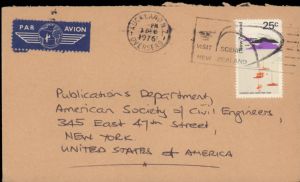 PAR AVION
AUCKLAND
1976
OVERSEAS
VISIT SCENIC
NEW ZEALAND
25c
Publications Department,
American Society of Civil Engineers,
345 East 47th Street,
NEW YORK.
UNITED STATES of AMERICA